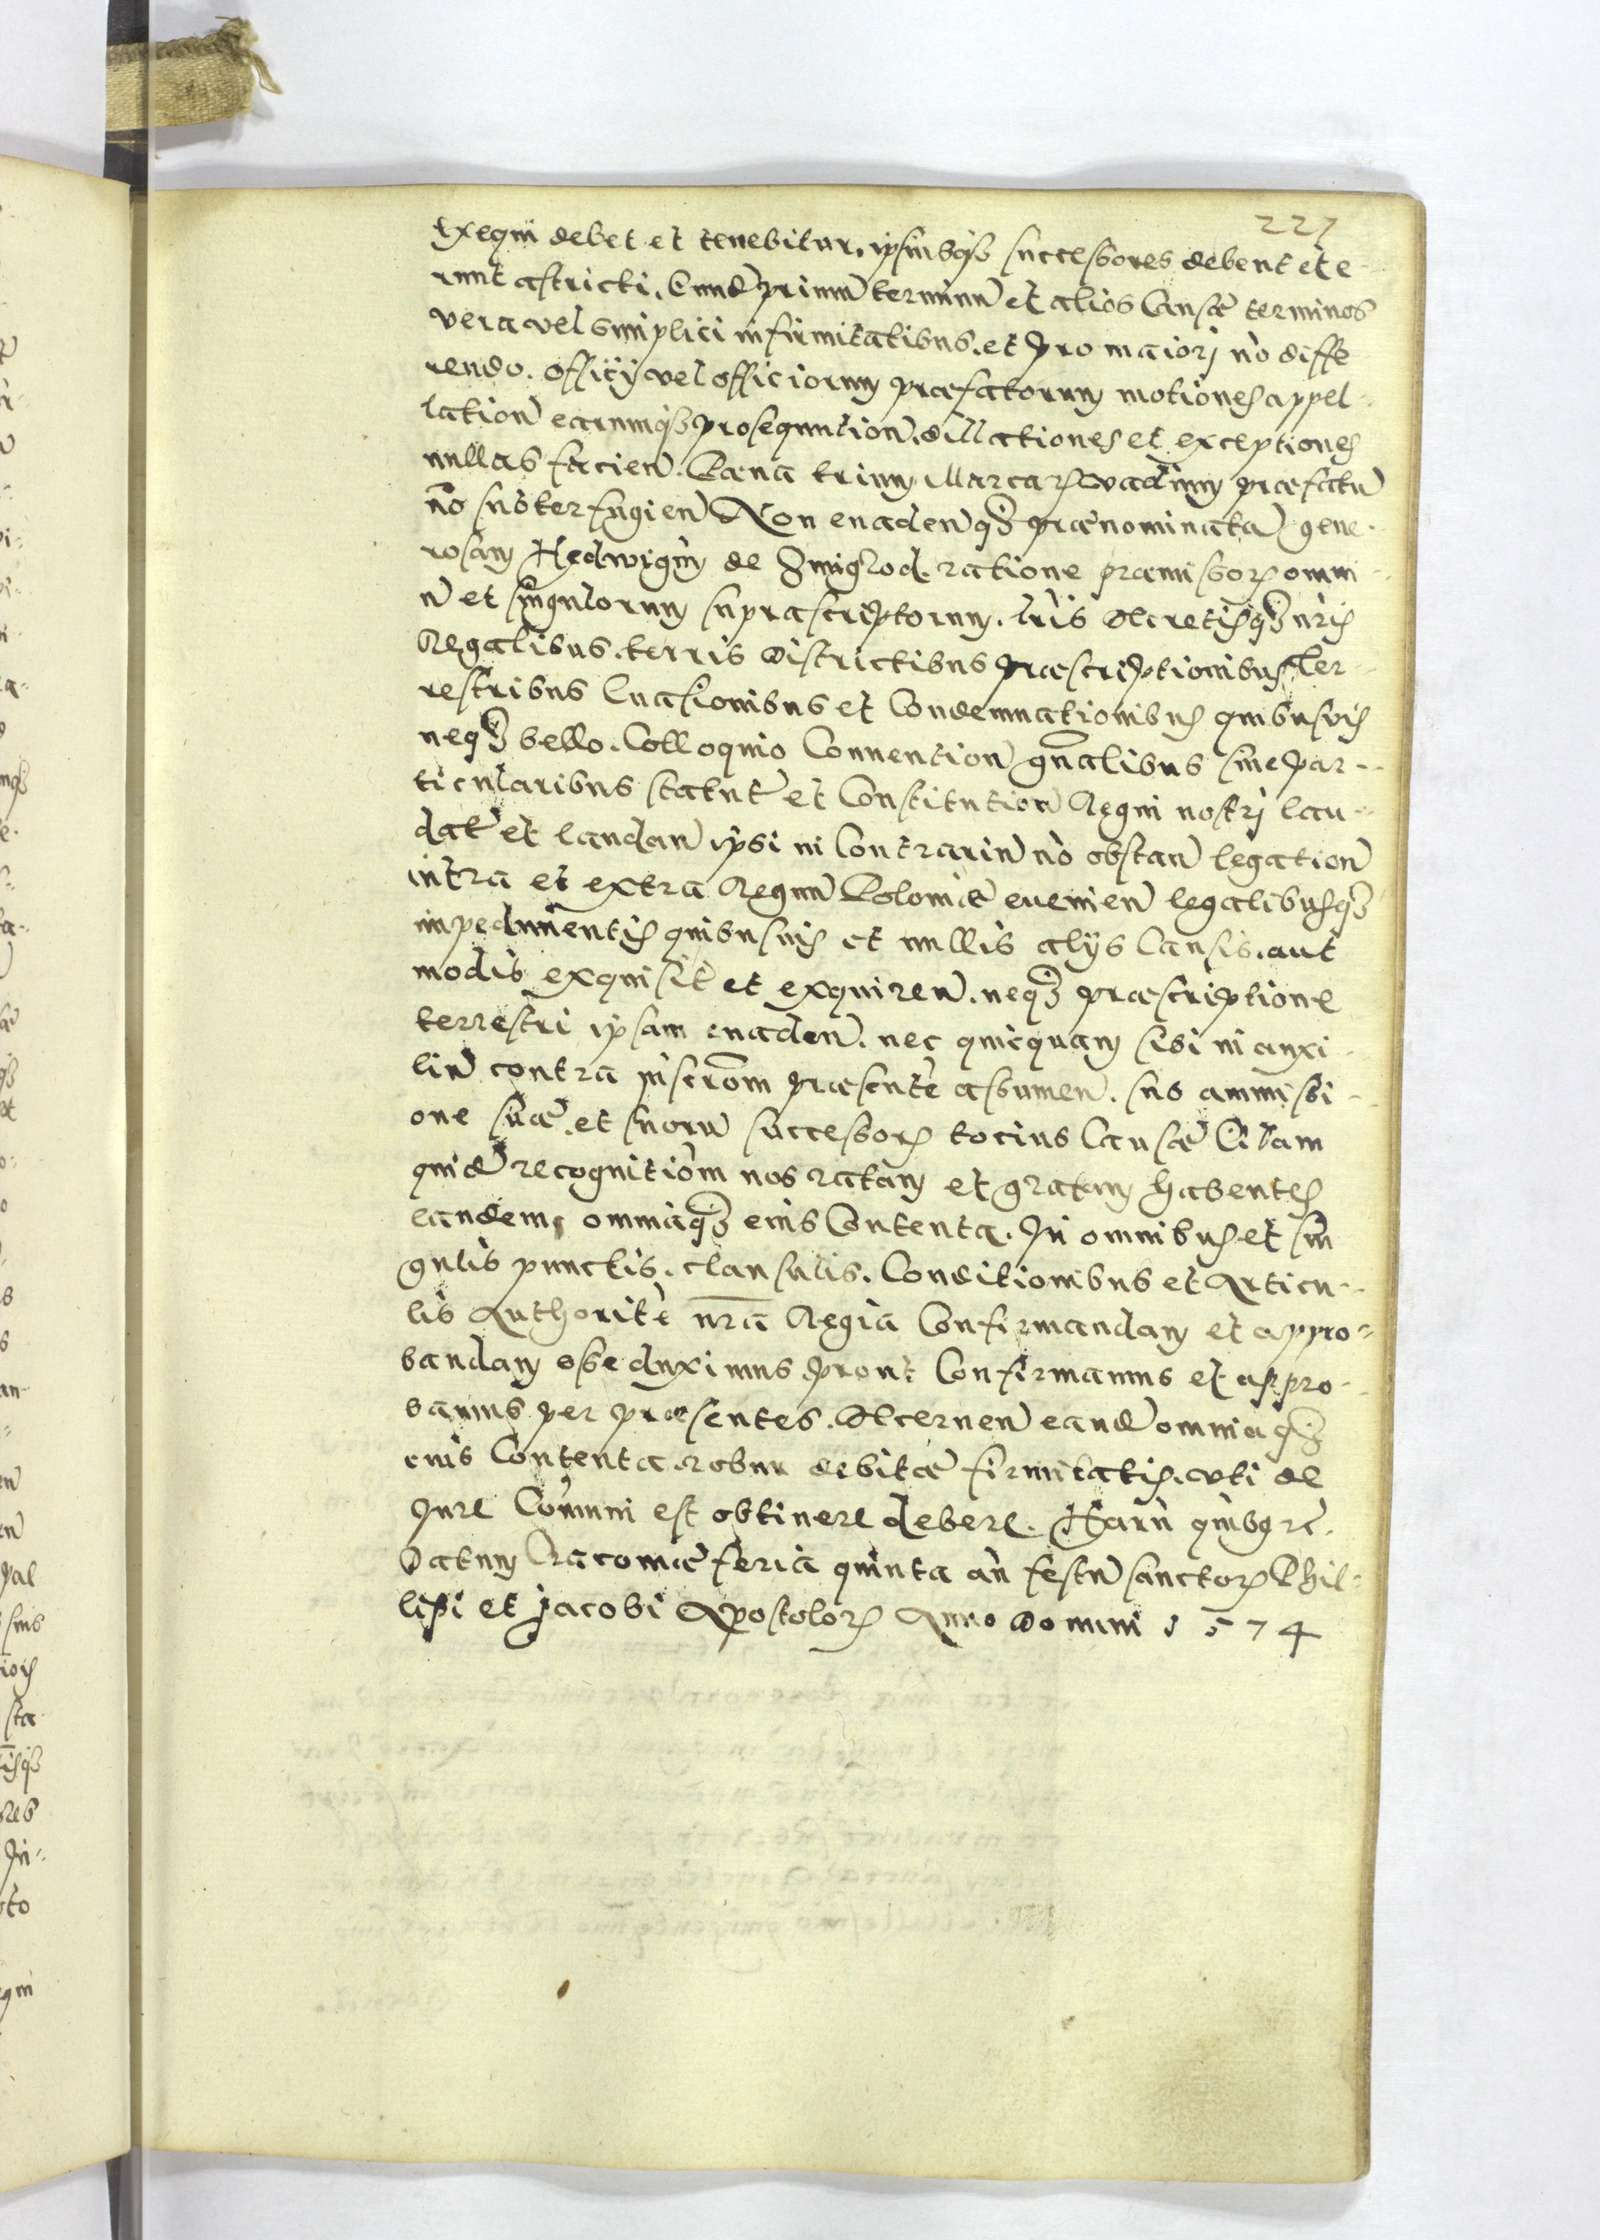 227
exequi debet et tenebitur. ipsiusq3 successores debent et e-
runt astricti. Eund̃ primũ terminũ et alios Causæ terminos
vera vel simplici infirmitatibus. et pro maiorj nõ diffe
rendo. officij vel officiorum præfatorum motiones appel-
lation̄ earumq3 prosequution̄. dillationes et exceptiones
nullas facien̄. Pæna trium Marcar̃ vadium præfatũ
nõ subterfugien̄ Non euaden̄ q3 prænominatã gene-
rosam Hedwigim de Zmigrod. ratione præmissor̃ omni-
ũ et singulorum suprascriptorum. lr̃is decretisq3 nr̃is
Regalibus. terris districtibus præscriptionibus ter-
restribus Euasionibus et Condemnationibus quibusvis
neq3 bello. Colloquio Conuention̄ gñalibus siue par-
ticularibus statut̃ et Constitution̄ Regni nostrj lau-
dat̃ et laudan̄ ipsi in Contrariũ nõ obstan̄ legation̄
intra et extra Regnũ Poloniæ euenien̄ legalibusq3
impedimentis quibusuis et nullis alijs Causis. aut
modis exquisit̃ et exquiren̄. neq3 præscriptione
terrestri ipsam euaden̄. nec quicquam sibi in auxi-
liũ contra inscr̃om præsente assumen̄. sub ammissi-
one suæ. et suorũ successor̃ tocius Causæ Citam
quid̃ recognitiom nos ratam et gratam habentes
eandem omniaq3 eius Contenta. In omnibus et sin
gulis punctis. clausulis. Conditionibus et Articu-
lis Authoritẽ nr̃a Regia Confirmandam et appro-
bandam esse duximus prout Confirmamus et appro-
bamus per præsentes. Decernen̄ eand̃ omniaq3
eius Contenta robur debitæ firmitatis. vti de
Jure Com̃uni est obtinere debere. Harũ quibg rẽ.
Datum Cracouiæ feria quinta añ festũ sanctor̃ Phil-
lipi et Jacobi Apostolor̃ Anno Domini 1574